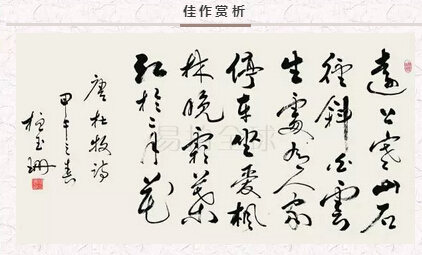 佳作赏析
远上寒山石
径斜白云
生处有人家
停车坐爱枫
林晚霜叶
红于二月花
唐杜牧诗
甲午之春